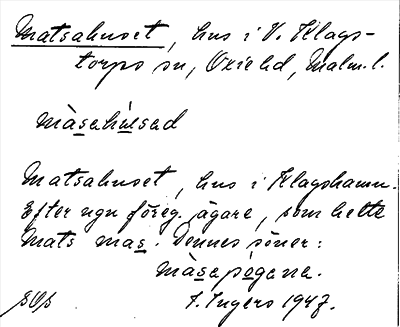 Matsahuset, hus i V. Klags-
torps sn, Oxie hd, Malm. l.
måsahúsad
Matsahuset, hus i Klagshamn.
Efter ngn föreg. ägare, som hette
Mats mas. Dennes söner:
måsapógana.
I. Ingers 1947.